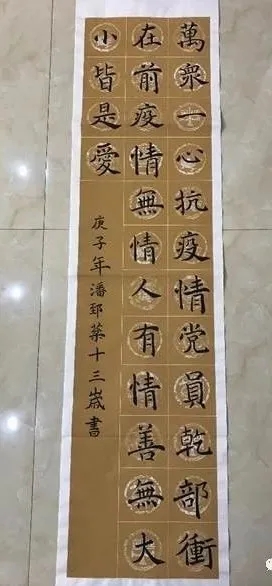 萬衆一心抗疫情党員乾部衝
在前疫情無情人有情善無大
小皆是愛
庚子年潘郅葉十三歲書